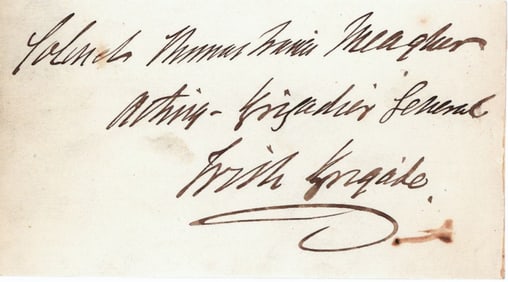 Colonel Thomas Francis Meagher
Acting - Brigadier General
Irish Brigade.